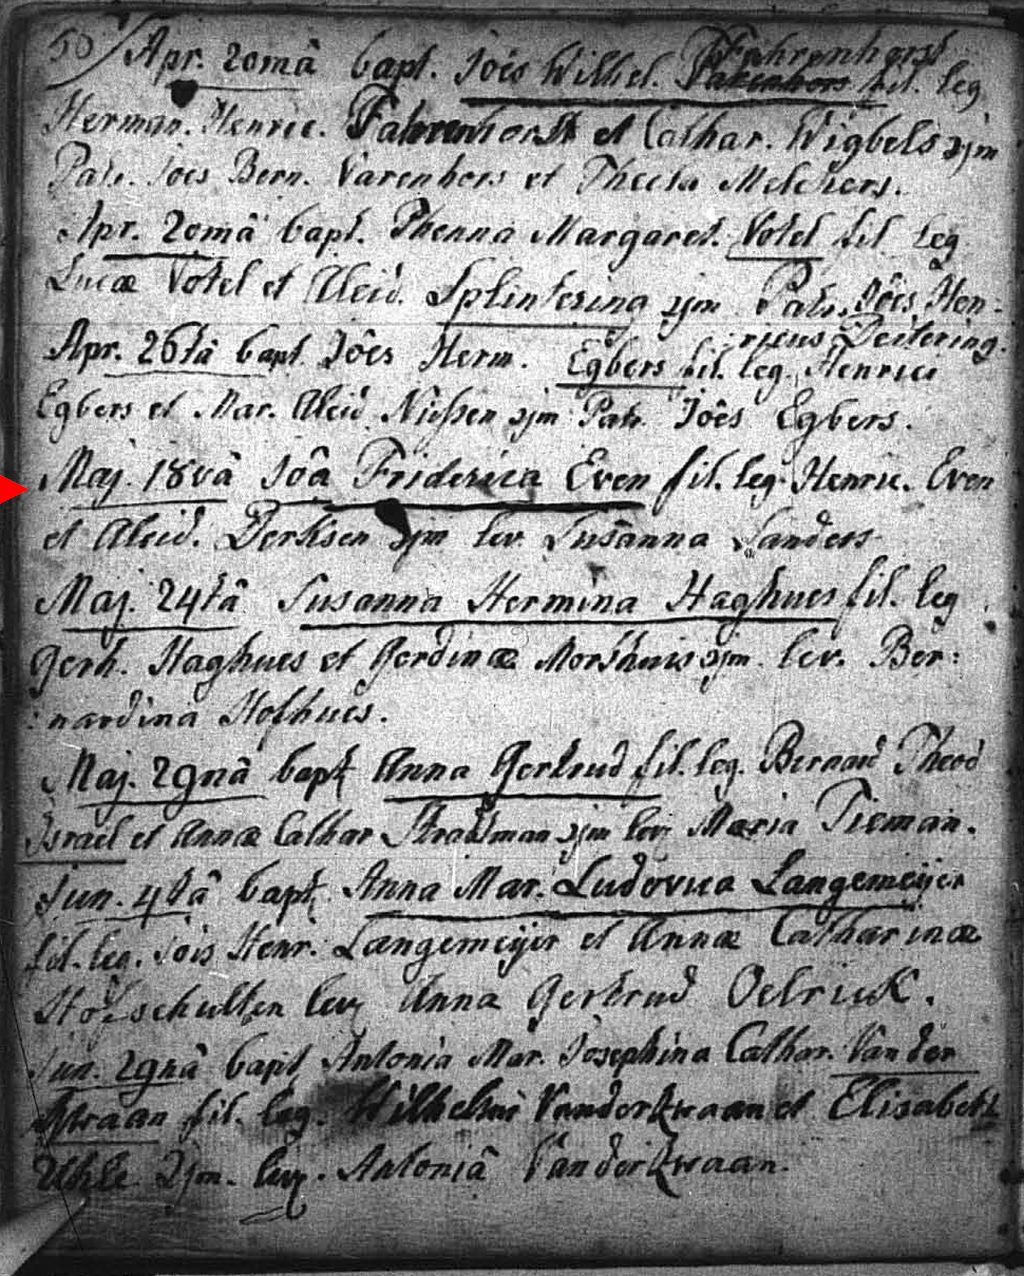 50/ Apr. 20mâ bapt. Joês Wilhel. Fahrenhorst fil. leg.
Herman. Henric. Fahrenhorst et Cathar. Wigbels
Patr. Joes Bern. Varenhors et Thecla Melchers.
Apr. 20mâ bapt. Phenna Margaret. Votel fil leg
Lucæ Votel et Aleid. Splintering Patr. Jôês Hen-
ricus Deitering.
Apr. 26tâ bapt. Jôês Herm. Egbers fil. leg. Henrici
Egbers et Mar. Aleid Niessen Patr. Jôês Egbers.
Maj. 18vâ Joâ Friderica Even fil. leg. Henric. Even
et Aleid. Derksen lev. Susanna Sanders
Maj. 24tâ Susanna Hermina Haghues fil. leg
Gerh. Haghues et Gerdinæ Morshuis lev. Ber:
:nardina Hofhues.
Maj. 29nâ bapt Anna Gertrud fil. leg. Bernard Theod
Israel et Annæ Cathar Stratman lev. Maria Tieman.
Jun. 4tâ bapt. Anna Mar. Ludovica Langemeijer
fil. leg. Jois Henr. Langemeijer et Annæ Catharinæ
Holschulten lev Anna Gertrud Oelrick.
Jun. 29nâ bapt Antonia Mar. Josephina Cathar. Vander
Zwaan fil. leg. Wilhelmi Vanderzwaan et Elisabeth
lev. Antoniâ Vanderzwaan.